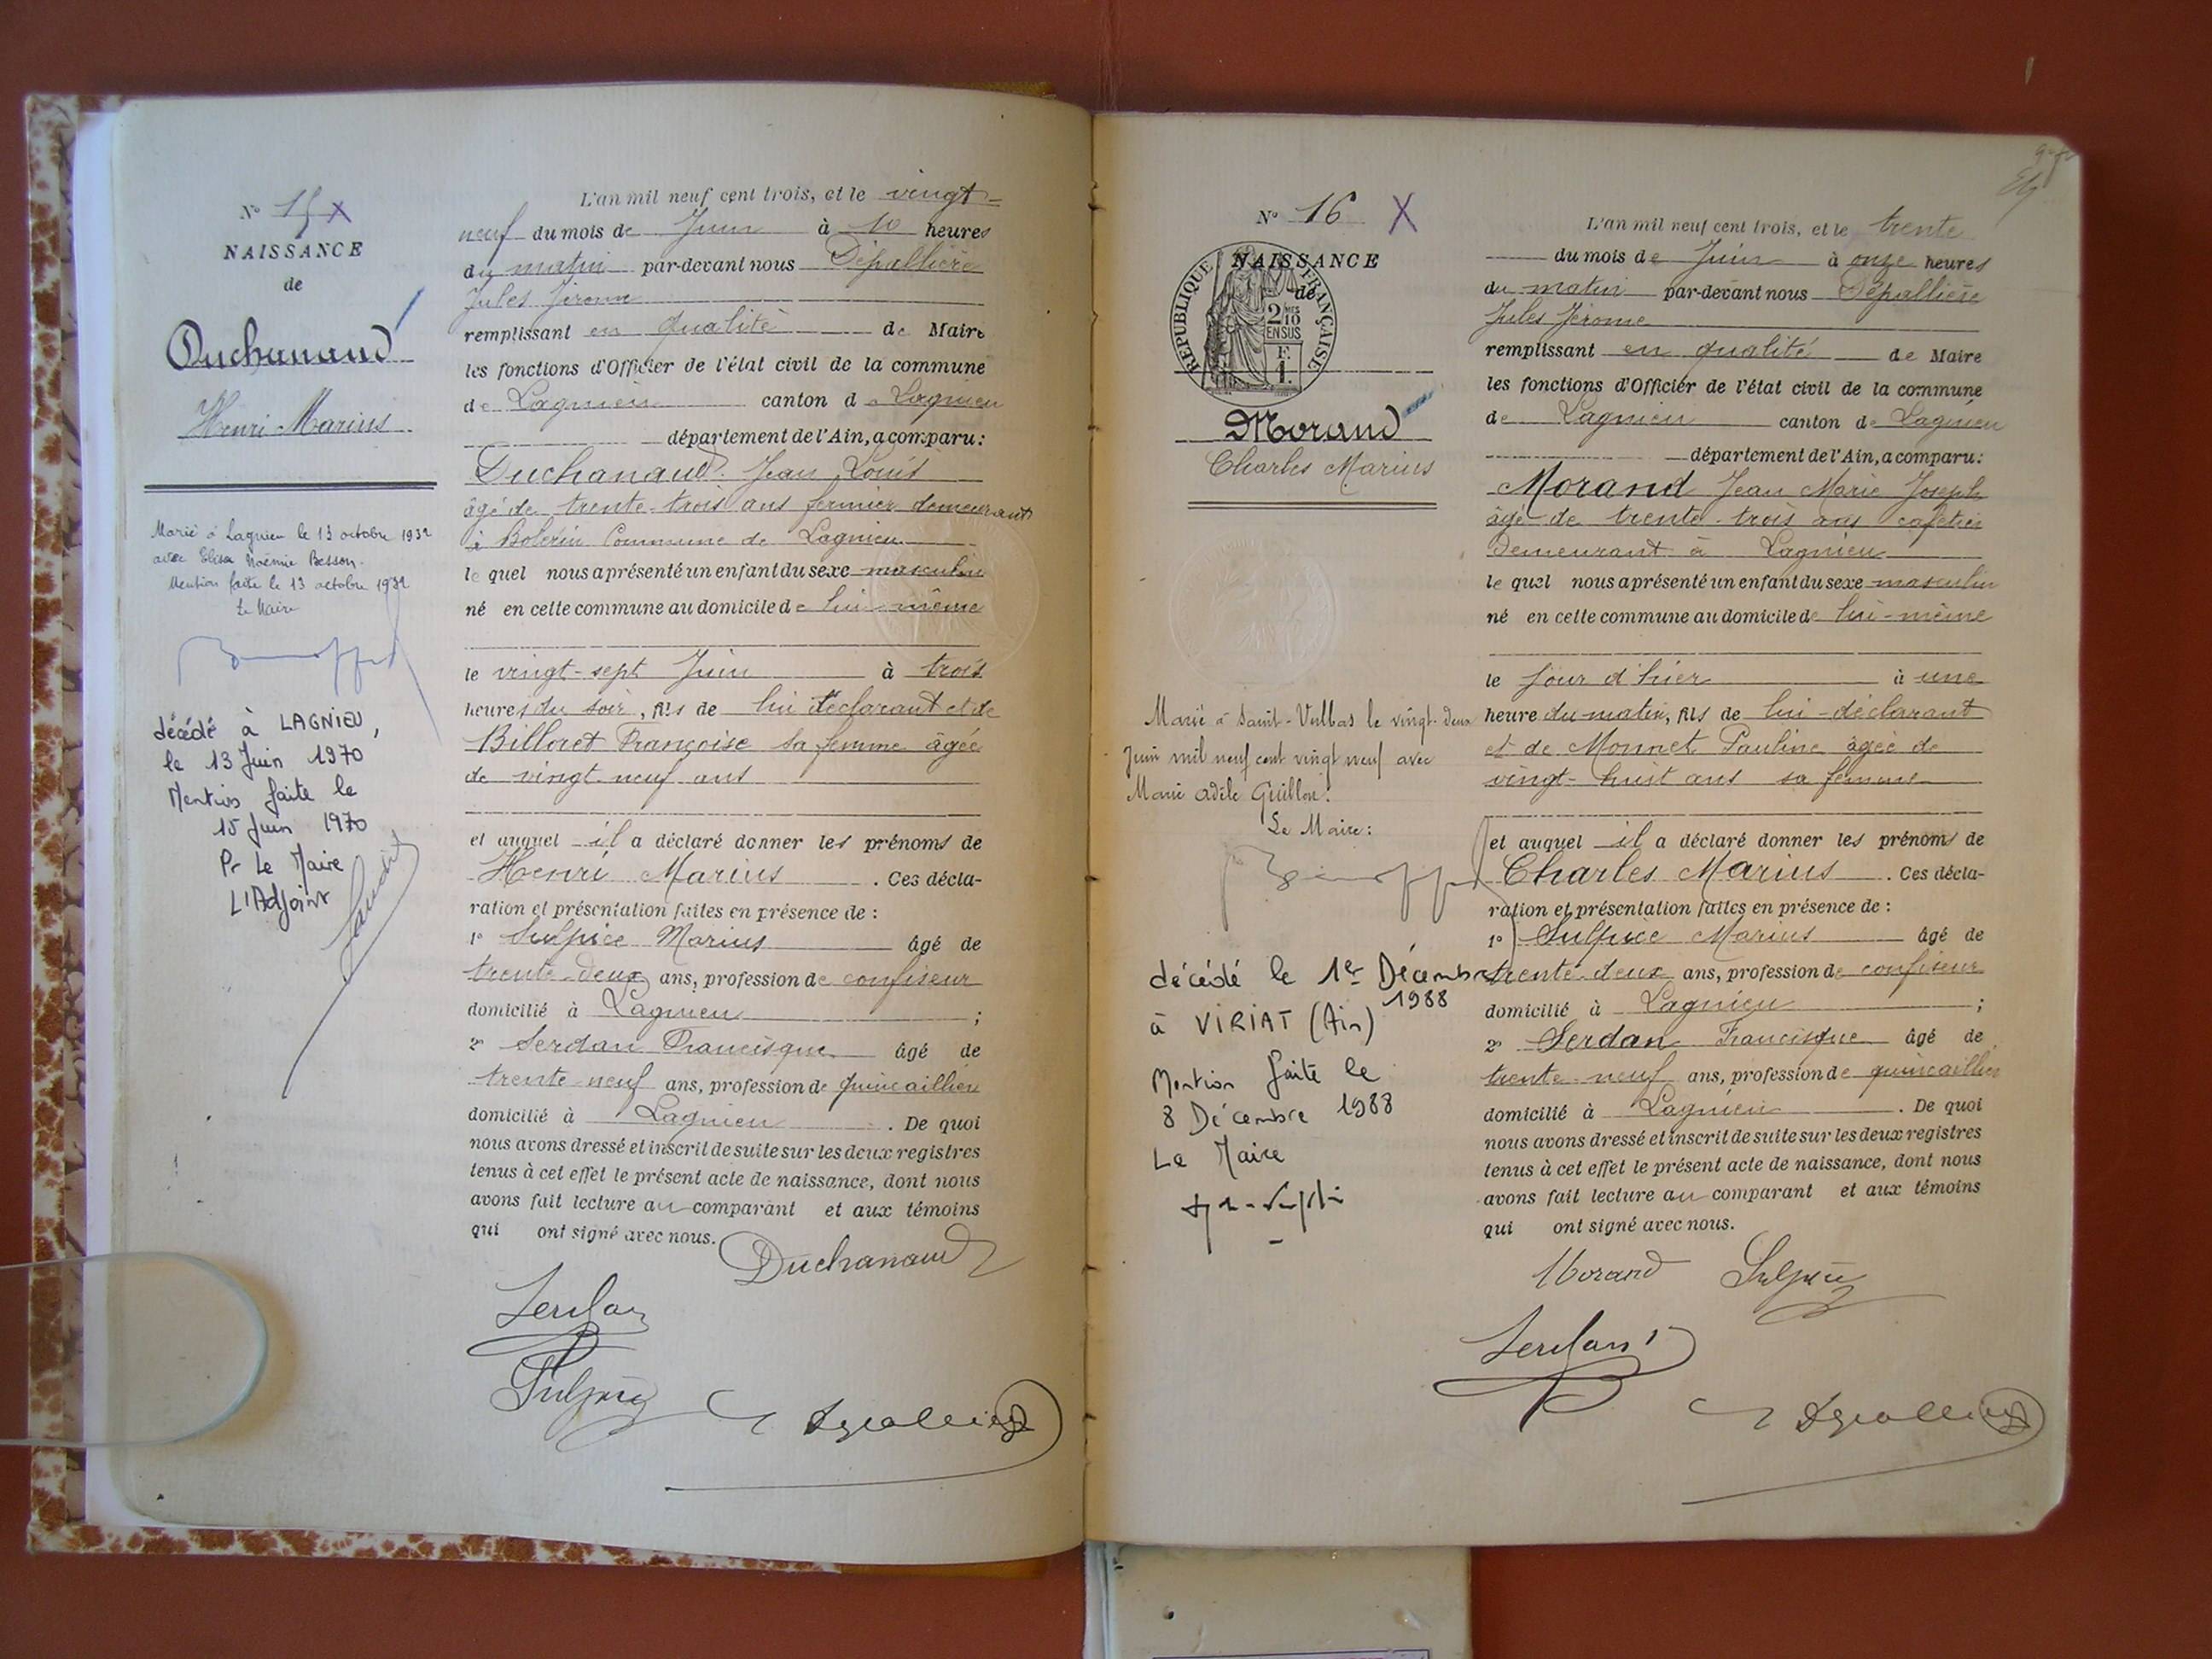 N° 15 X
NAISSANCE
de
Duchanaud
Henri Marius
Marié à Lagnieu le 13 octobre 1932
avec Elisa Noémie Besson.
Mention faite le 13 octobre 1932
Le Maire
décédé à LAGNIEU,
le 13 Juin 1970
Mention faite le
15 Juin 1970
Pr Le Maire
L'Adjoint
L'an mil neuf cent trois, et le vingt-
neuf du mois de Juin à 10 heures
du matin par-devant nous Dépallière
Jules Jérome
remplissant en qualité de Maire
les fonctions d'Officier de l'état civil de la commune
de Lagnieu canton de Lagnieu
département de l'Ain, a comparu:
Duchanaud Jean Louis
âgé de trente-trois ans fermier demeurant
à Commune de Lagnieu
le quel nous a présenté un enfant du sexe masculin
né en cette commune au domicile de lui-même
le vingt-sept Juin à trois
heures du soir, fils de lui déclarant et de
Billoret Françoise sa femme âgée
de vingt-neuf ans
et auquel il a déclaré donner les prénoms de
Henri Marius. Ces décla-
ration et présentation faites en présence de :
1° Sulpice Marius âgé de
trente-deux ans, profession de confiseur
domicilié à Lagnieu ;
2° Serdan Francisque âgé de
trente-neuf ans, profession de quincaillier
domicilié à Lagnieu. De quoi
nous avons dressé et inscrit de suite sur les deux registres
tenus à cet effet le présent acte de naissance, dont nous
avons fait lecture au comparant et aux témoins
qui ont signé avec nous.
Duchanaud
Serdan
Sulpice
Depallière
N° 16 X
NAISSANCE
de
REPUBLIQUE FRANÇAISE
2/10
EN SUS
F.
1.
Morand
Charles Marius
Marié à Saint-Vulbas le vingt-deux
Juin mil neuf cent vingt neuf avec
Marie Adèle Guillon.
Le Maire:
décédé le 1er Décembre
1988
à VIRIAT (Ain)
Mention faite le
8 Décembre 1988
Le Maire
L'an mil neuf cent trois, et le trente
du mois de Juin à onze heures
du matin par-devant nous Dépallière
Jules Jérome
remplissant en qualité de Maire
les fonctions d'Officier de l'état civil de la commune
de Lagnieu canton de Lagnieu
département de l'Ain, a comparu:
Morand Jean Marie Joseph
âgé de trente-trois ans cafetier
Demeurant à Lagnieu
le quel nous a présenté un enfant du sexe masculin
né en cette commune au domicile de lui-même
le jour d'hier à une
heure du matin, fils de lui-déclarant
et de Monnet Pauline âgée de
vingt-huit ans sa femme
et auquel il a déclaré donner les prénoms de
Charles Marius. Ces décla-
ration et présentation faites en présence de :
1° Sulpice Marius âgé de
trente-deux ans, profession de confiseur
domicilié à Lagnieu ;
2° Serdan Francisque âgé de
trente-neuf ans, profession de quincaillier
domicilié à Lagnieu. De quoi
nous avons dressé et inscrit de suite sur les deux registres
tenus à cet effet le présent acte de naissance, dont nous
avons fait lecture au comparant et aux témoins
qui ont signé avec nous.
Morand Sulpice
Serdan
Depallière